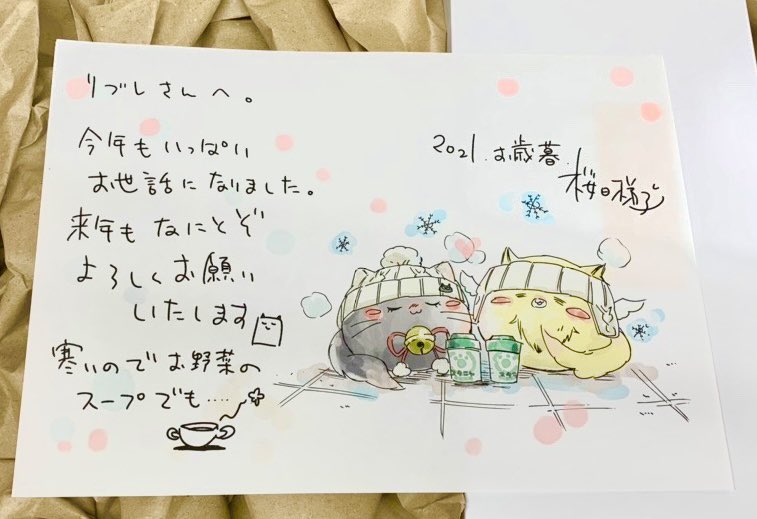 リブレさんへ。
今年もいっぱい
お世話になりました。
来年もなにとぞ
よろしくお願い
いたします
寒いのでお野菜の
スープでも……
2021.お歳暮.
桜日梯子